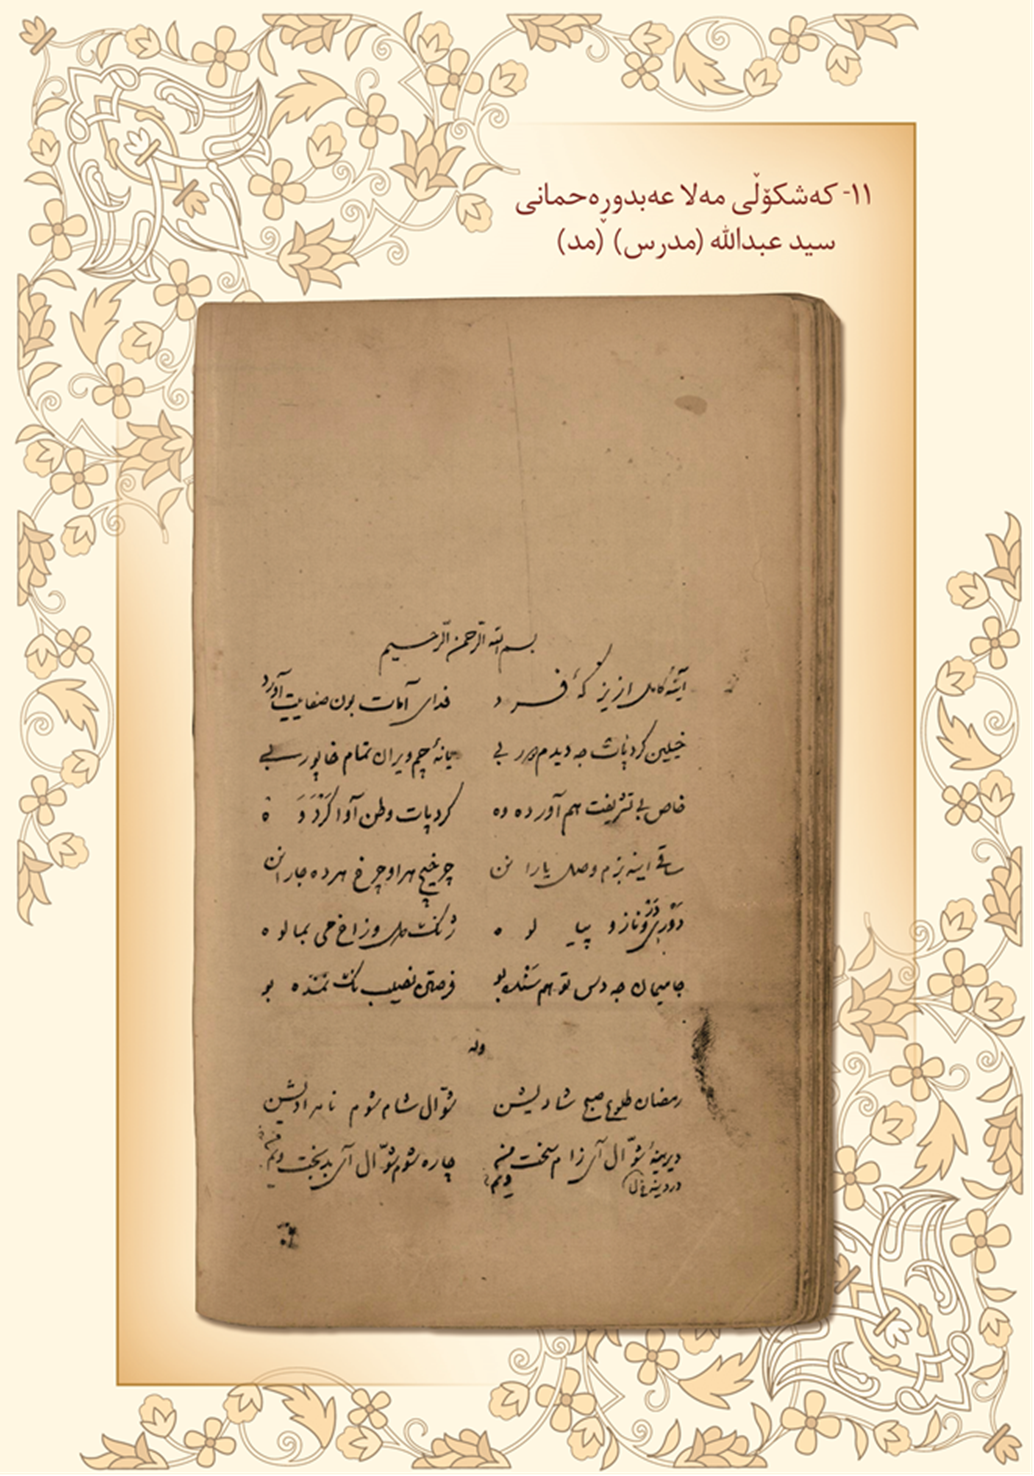 ١١- کەشکۆڵی مەلا عەبدوڕەحمانی
سید عبدالله (مدرس) (مد)
بسم الله الرحمن الرحیم
فدای آمات بون صفایت آورد
خیلین کردنیات جه دیدم دور بی یانهٔ چم ویران تمام خاپور بی
خاص بی تشریفت هم آورده وه کردیات وطن آوا کرده وه
ساقی اینه بزم وصل یاران چرخچی هراوچرخ هرده جاران
دوری ونازو پیاله وه زاغ می بمالوه
جامیمان جه دس تو هم سنده بو فرصتن نصیب نمنده بو
وله
رمضان طلوع صبح شادیشن شوال شام شوم نامرادیشن
دیرینهٔ شوال آی زام سخت من چاره شوم شوال آی بدبخت